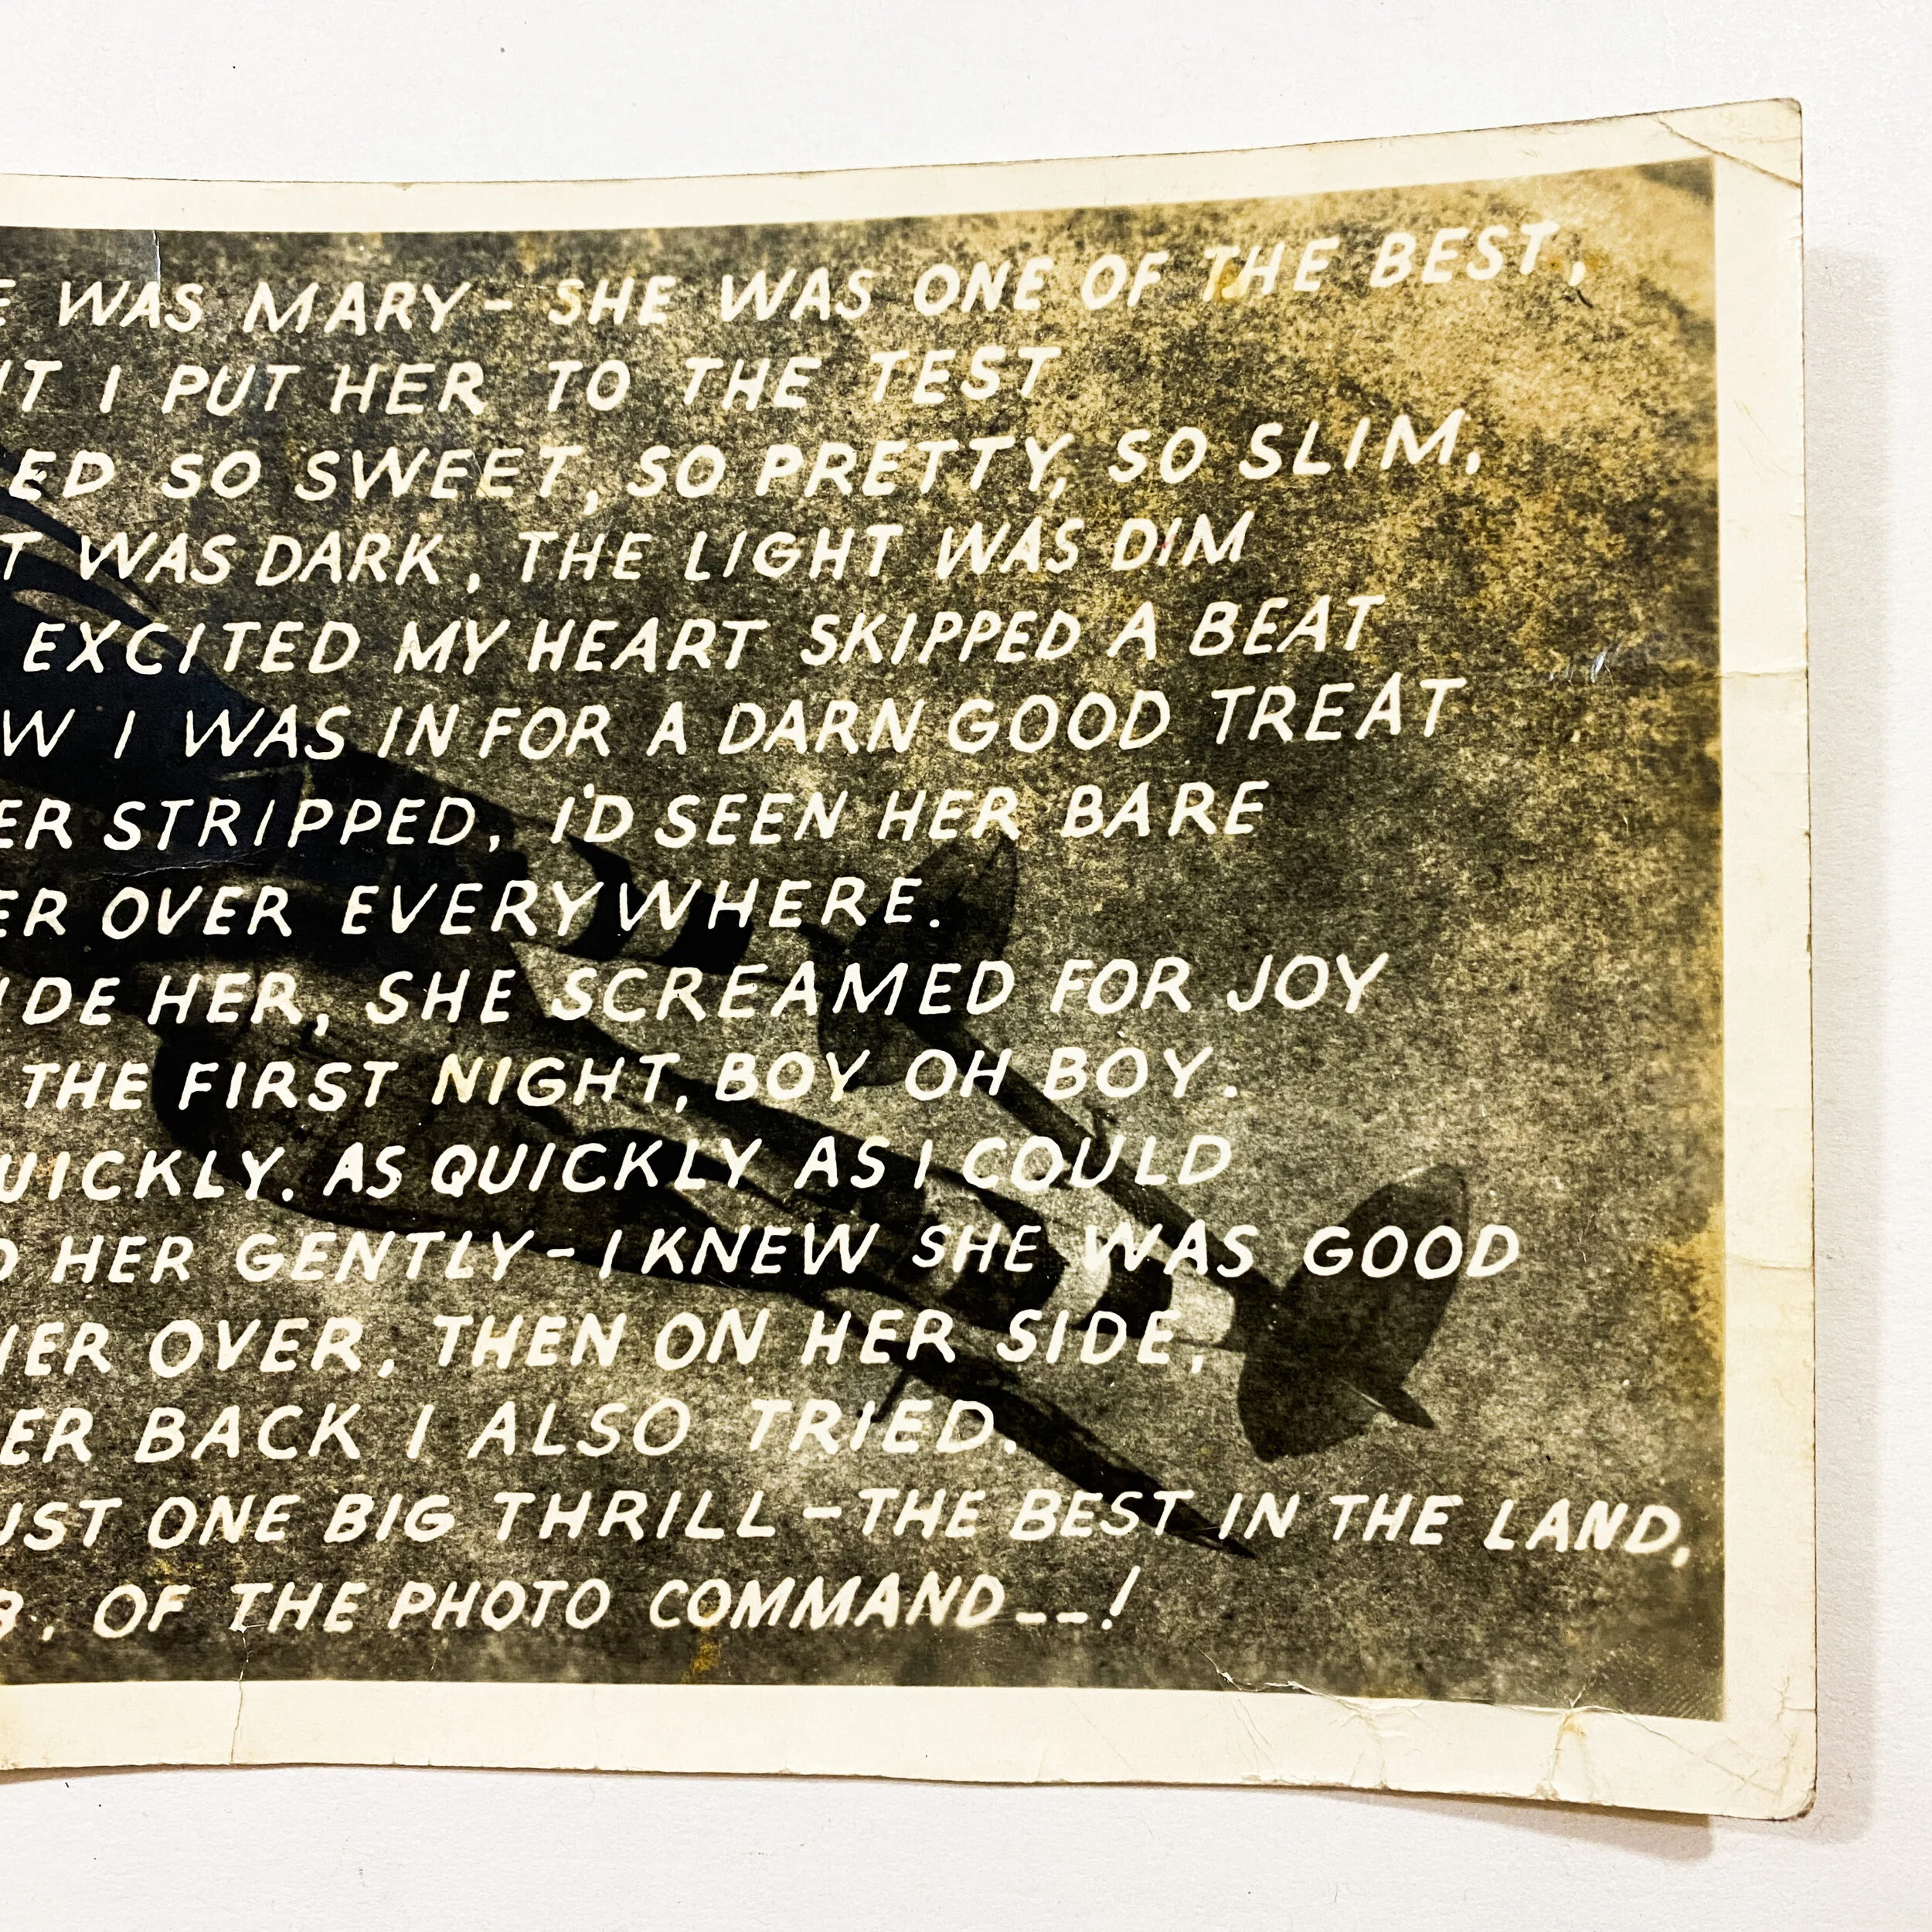 E WAS MARY- SHE WAS ONE OF THE BEST,
HT I PUT HER TO THE TEST
ED SO SWEET, SO PRETTY, SO SLIM.
T WAS DARK, THE LIGHT WAS DIM
EXCITED MY HEART SKIPPED A BEAT
W I WAS IN FOR A DARN GOOD TREAT
ER STRIPPED, I'D SEEN HER BARE
ER OVER EVERYWHERE.
IDE HER, SHE SCREAMED FOR JOY
THE FIRST NIGHT, BOY OH BOY.
UICKLY. AS QUICKLY AS I COULD
D HER GENTLY- I KNEW SHE WAS GOOD
HER OVER, THEN ON HER SIDE,
ER BACK I ALSO TRIED.
UST ONE BIG THRILL - THE BEST IN THE LAND,
. OF THE PHOTO COMMAND--!